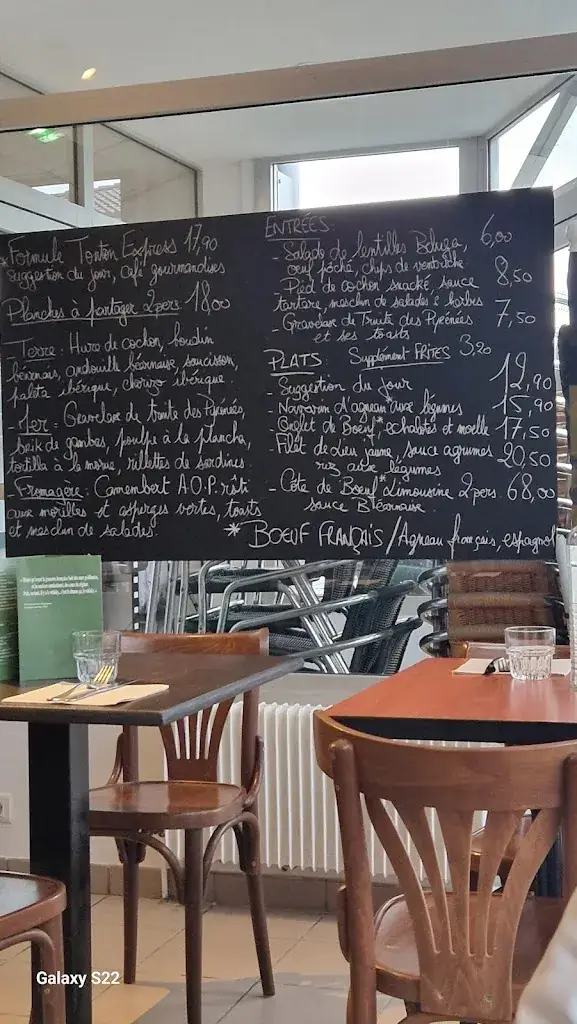 * Formule Tonton Express 17,90
suggestion du jour, Café gourmandises
Planches à partager 2 pers 18,00
- Terre : Hure de cochon, boudin
béarnais, andouille béarnaise, saucisson,
paleta ibérique, chorizo ibérique.
- Mer = Gravelax de truite des Pyrénées,
de gambas, poulpe à la plancha,
tortilla à la morue, rillettes de sardines.
- Fromagère : Camembert A.O.P. rôti
aux morilles et asperges vertes, toasts
et mesclun de salades.
ENTRÉES :
- Salade de lentilles Beluga, 6,00
oeuf poché, chips de ventrèche
- Pied de cochon snacké, sauce 8,50
tartare, mesclun de salades & herbes
- Gravelax de Truite des Pyrénées 7,50
et ses toasts
PLATS Supplément FRITES 3,20
- Suggestion du jour 12,90
- Navarin d'agneau aux légumes 15,90
- Onglet de Boeuf* échalotes et moelle 17,50
- Filet de Lieu jaune, sauce agrumes 20,50
riz aux légumes
- Côte de Boeuf* Limousine 2 pers. 68,00
sauce Béarnaise
* BOEUF FRANÇAIS / Agneau français, espagnol
Galaxy S22